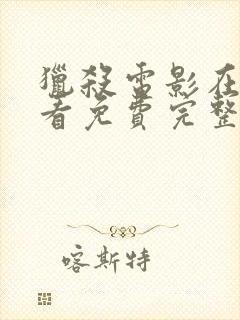 獵殺雷影在
看免費完整
喀斯特